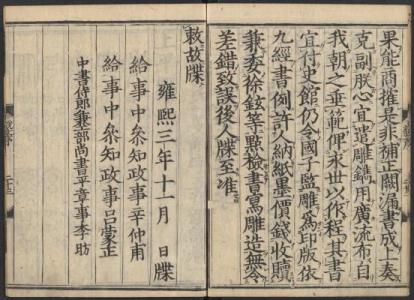 果能商搉是非補正闕漏書成上奏
克副朕心宜遣雕鐫用廣流布自
我朝之垂範俾永世以作程其書
宜付史館仍令國子監雕為印版依
九經書例許人納紙墨價錢收贖
兼委徐鉉等點檢書寫雕造無令
差錯致誤後人牒至准
敕故牒
雍熙三年十一月　日牒
給事中參知政事辛仲甫
給事中參知政事呂蒙正
中書侍郎兼工部尚書平章事李昉